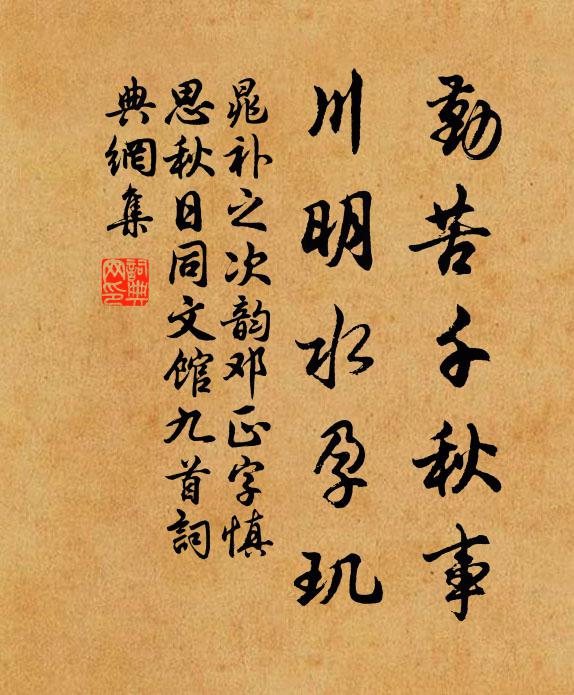 勤苦千秋事
川明水孕玑
晁补之次韵邓正字慎
思秋日同文馆九首詞
典網集
詞典网印